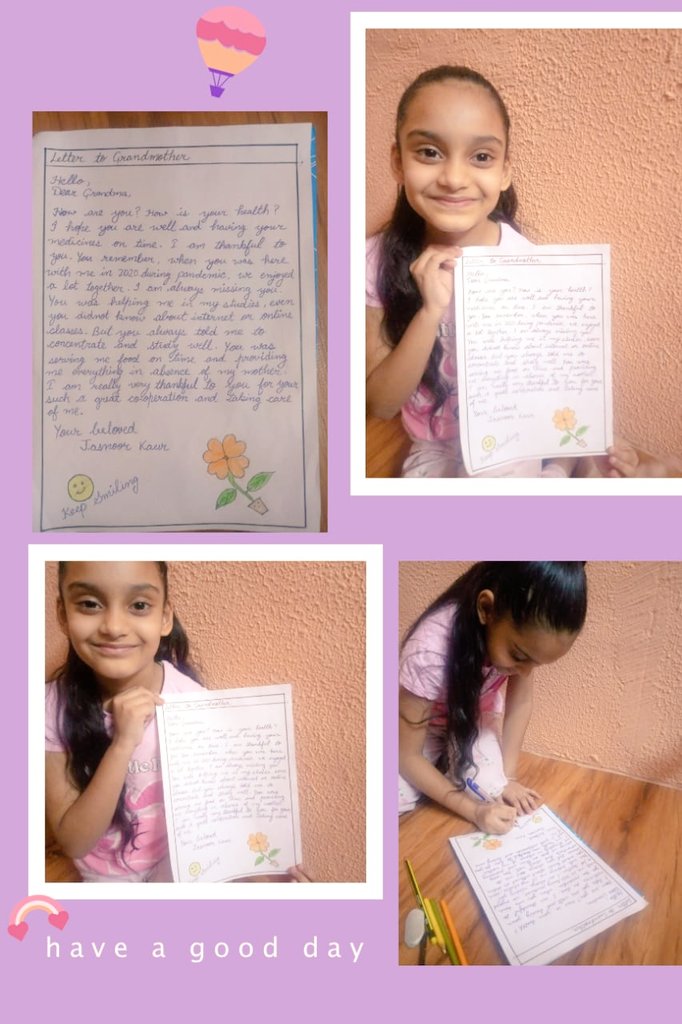 Letter to Grandmother
Hello,
Dear Grandma,
How are you? How is your health?
I hope you are well and having your
medicines on time. I am thankful to
you. You remember, when you was here
with me in 2020 during pandemic, we enjoyed
a lot together. I am always missing you.
You was helping me in my studies, even
you didnot know about internet or online
classes. But you always told me to
concentrate and study well. You was
serving me food on time and providing
me everything in absence of my mother.
I am really very thankful to you for your
such a great co-operation and taking care
of me.
Your beloved
Jasnoor Kaur
Keep Smiling
have a good day